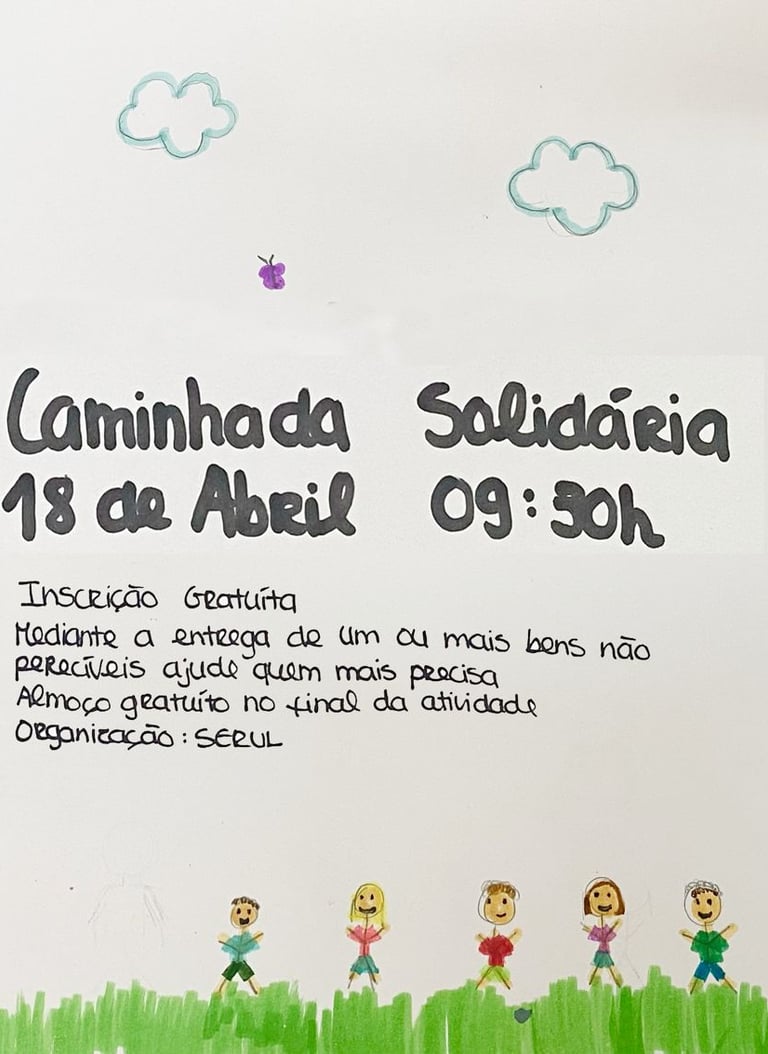 Caminhada Solidária
18 de Abril 09:30h
Inscrição Gratuíta
Mediante a entrega de um ou mais bens não
perecíveis ajude quem mais precisa
Almoço gratuíto no final da atividade
Organização: SERUL